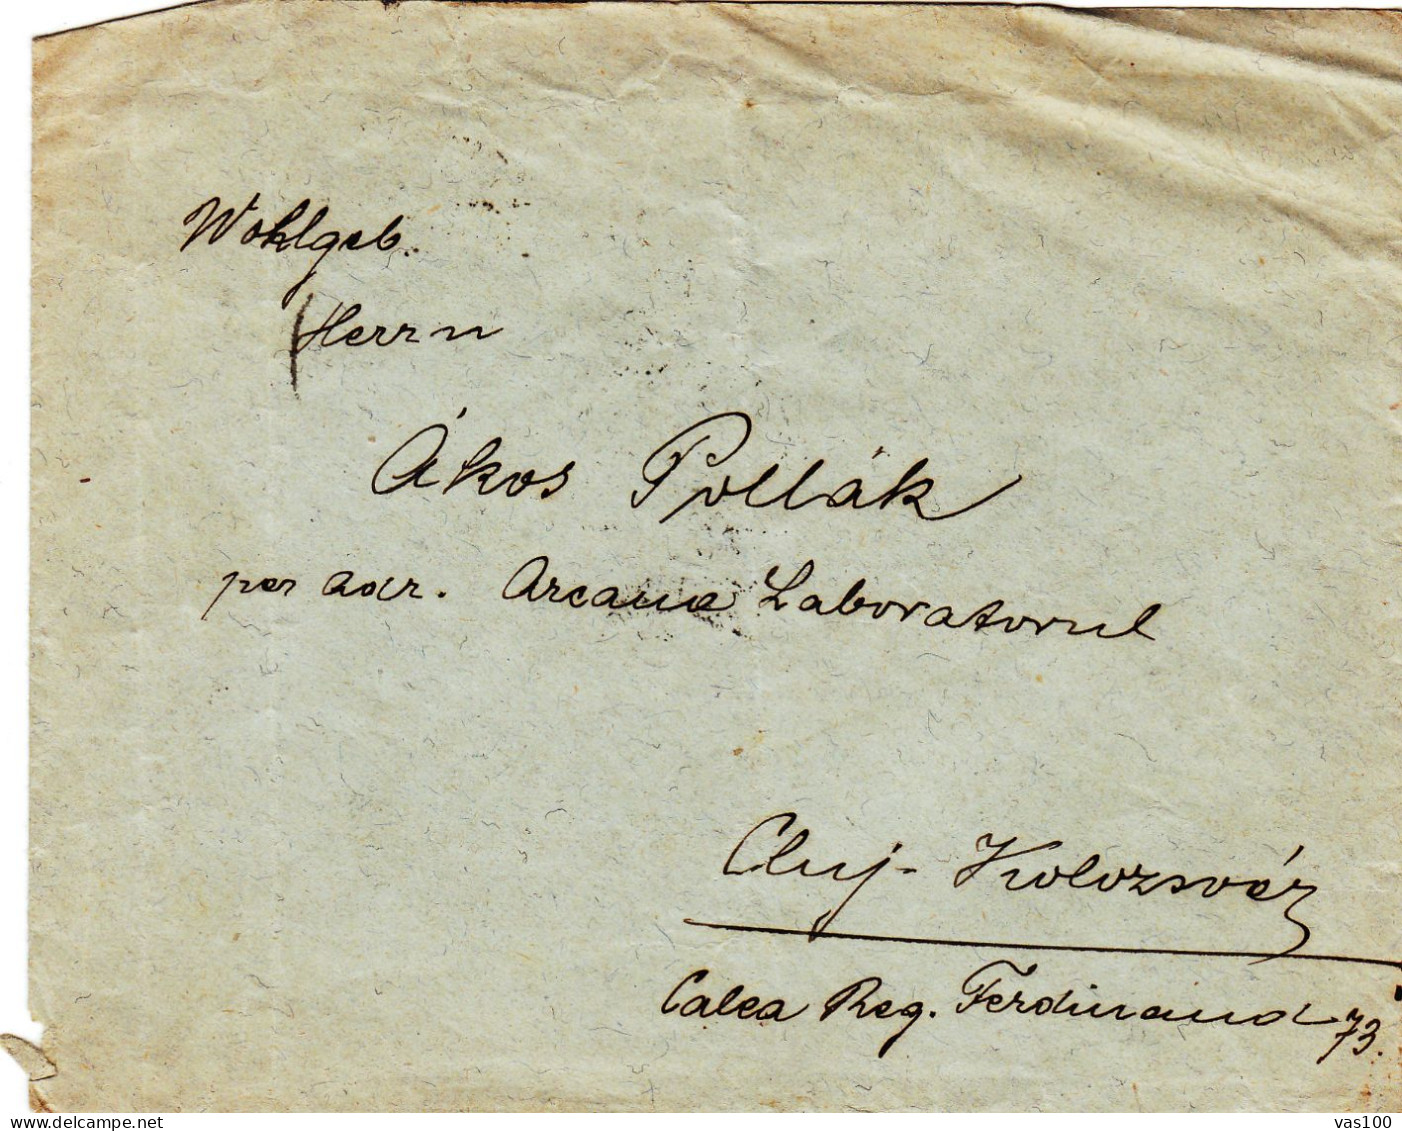 Wohlgeb.
Herrn
Ákos Pollák
per adr. Arcana Laboratorul
Cluj - Kolozsvár
Calea Reg. Ferdinand 73.
delcampe.net
vas100